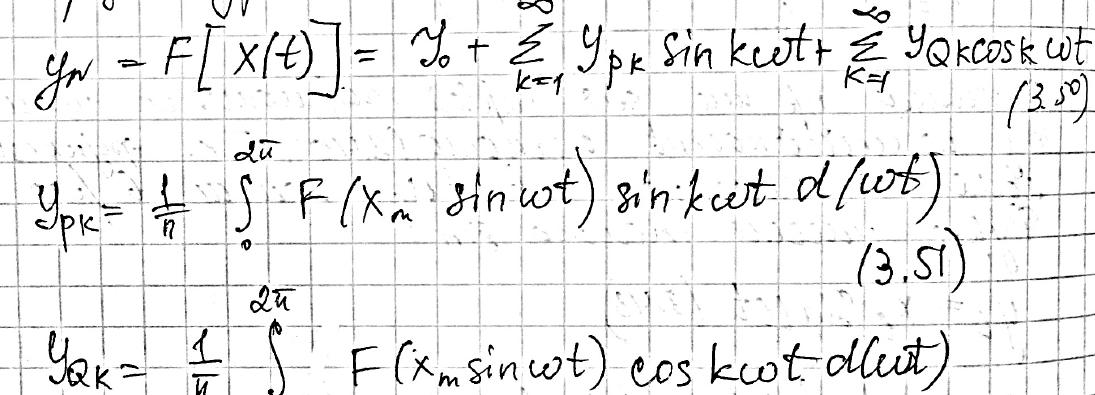 y_N = F[x(t)] = Y_0 + ∞∑k=1 Y_PK sin kωt + ∞∑k=1 Y_QK cos k ωt
(3.50)
Y_PK = 1/π 2π∫0 F(x_m sin ωt) sin kωt d(ωt)
(3.51)
Y_QK = 1/π 2π∫ F(x_m sin ωt) cos kωt d(ωt)